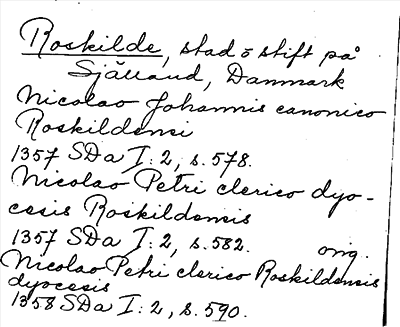 Roskilde, stad o stift på
Själland, Danmark
Nicolao Johannis canonico
Roskildensi
1357 SDa I:2, s. 578.
Nicolao Petri clerico dyo-
cesis Roskildensis
1357 SDa I:2, s. 582. orig.
Nicolao Petri clerico Roskildensis
dyocesis
1358 SDa I:2, s. 590.